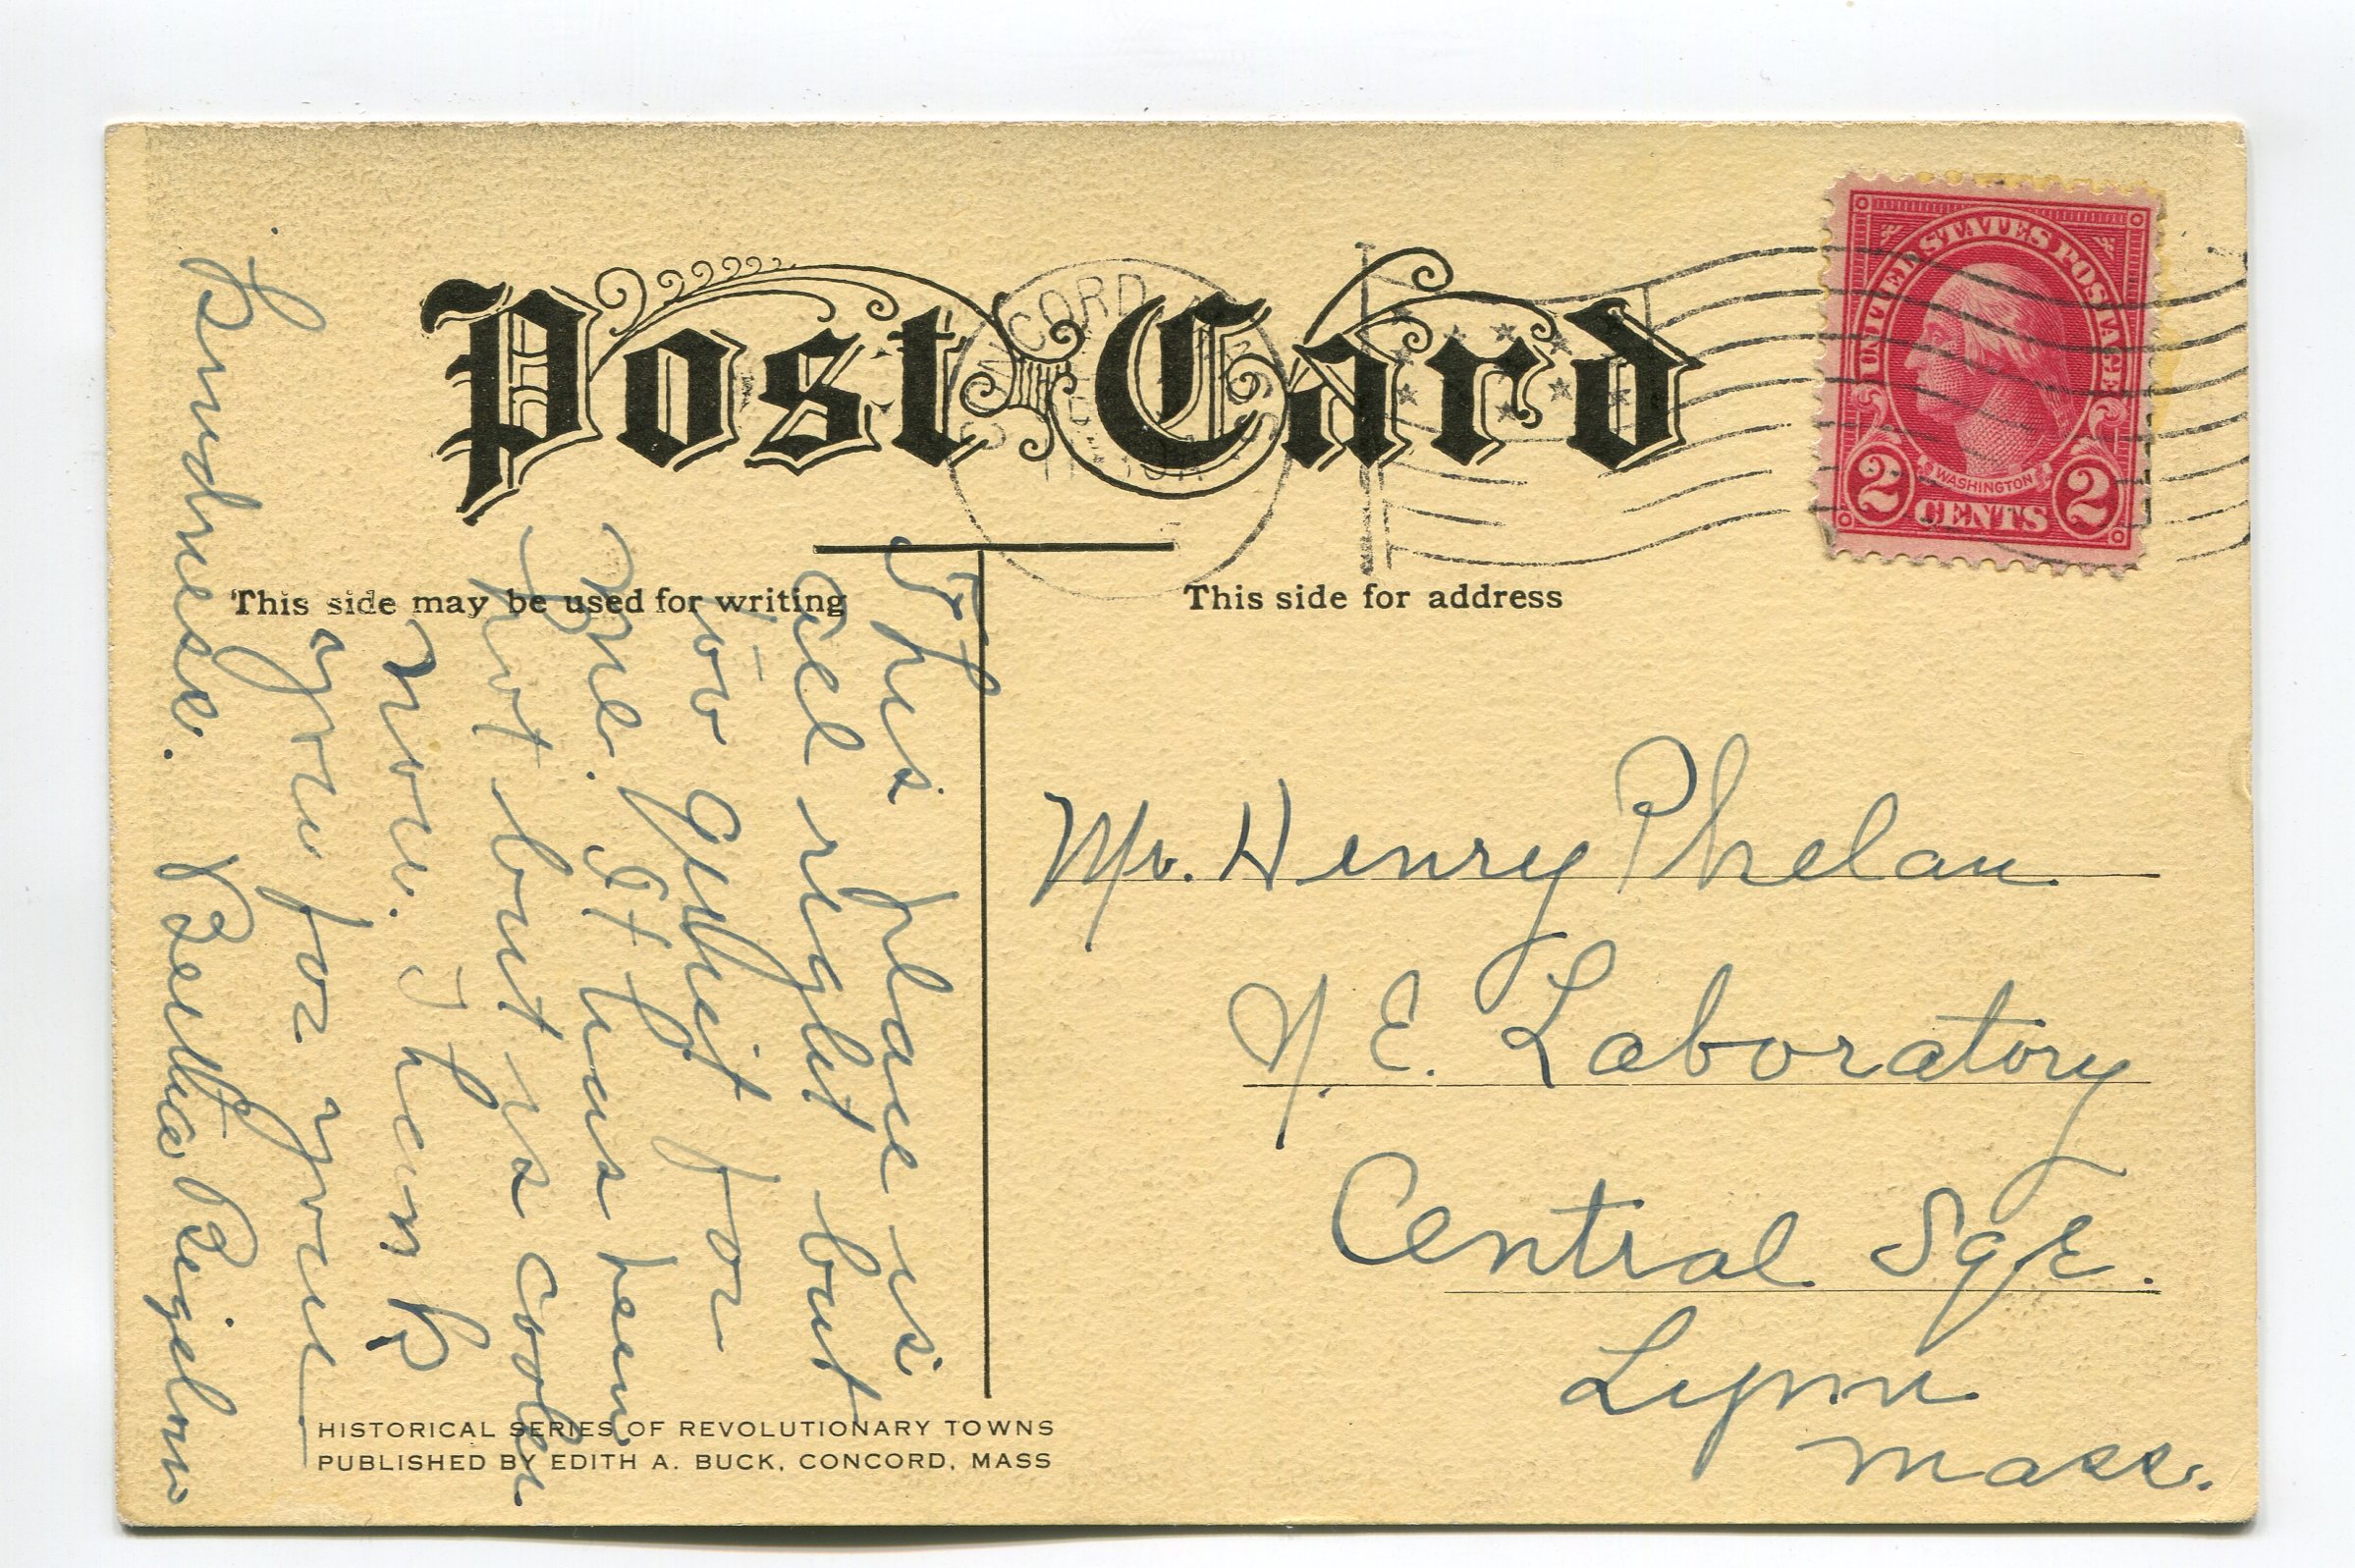 Post Card
CONCORD
UNITED STATES POSTAGE
WASHINGTON
2 CENTS 2
This side may be used for writing
This side for address
This place is
all right but
too quiet for
me. It has been
hot but is cooler
now. Thank
you for your
kindness. Bertha Bigelow
Mr. Henry Phelan
E. Laboratory
Central Sq
Lynn
Mass.
HISTORICAL SERIES OF REVOLUTIONARY TOWNS
PUBLISHED BY EDITH A. BUCK, CONCORD, MASS